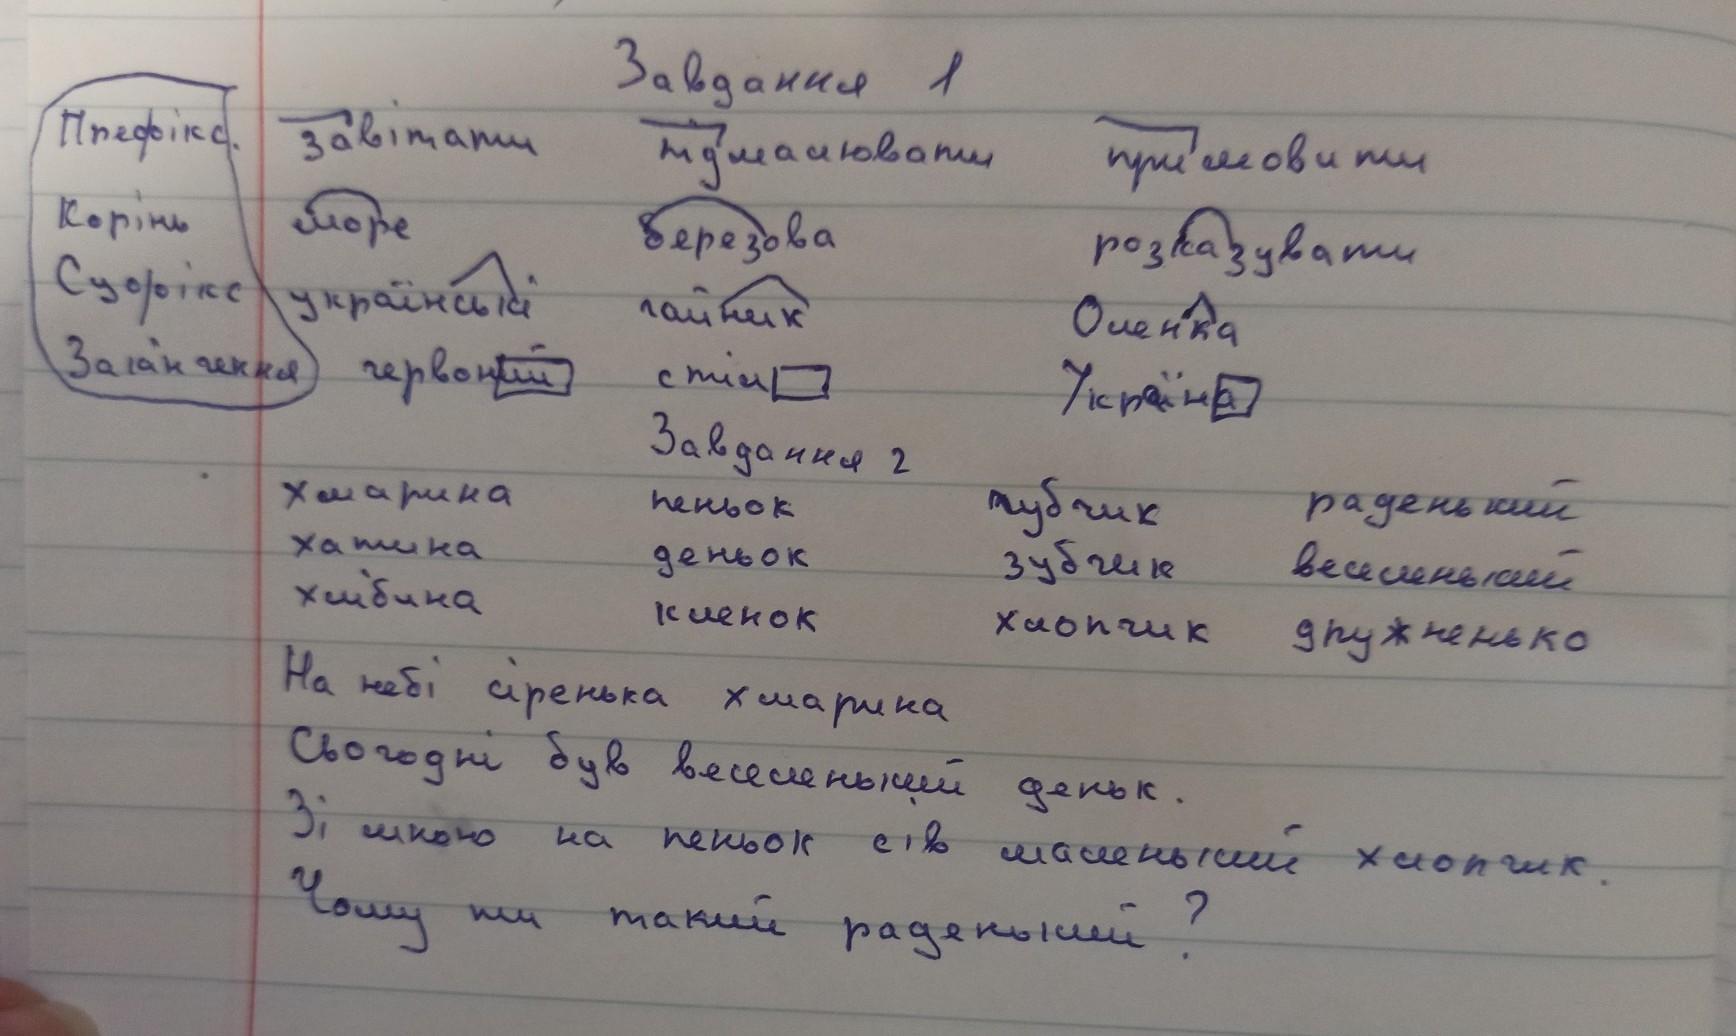 Завдання 1
Префікс. завітати підмалювати примовити
Корінь море березова розказувати
Суфікс українські чайник Оленка
Закінчення червоний стіл Україна
Завдання 2
хмарина пеньок чубчик раденький
хатина деньок зубчик веселенький
хлібина кленок хлопчик дружненько
На небі сіренька хмарина
Сьогодні був веселенький деньк.
Зі мною на пеньок сів маленький хлопчик.
Чому ти такий раденький?